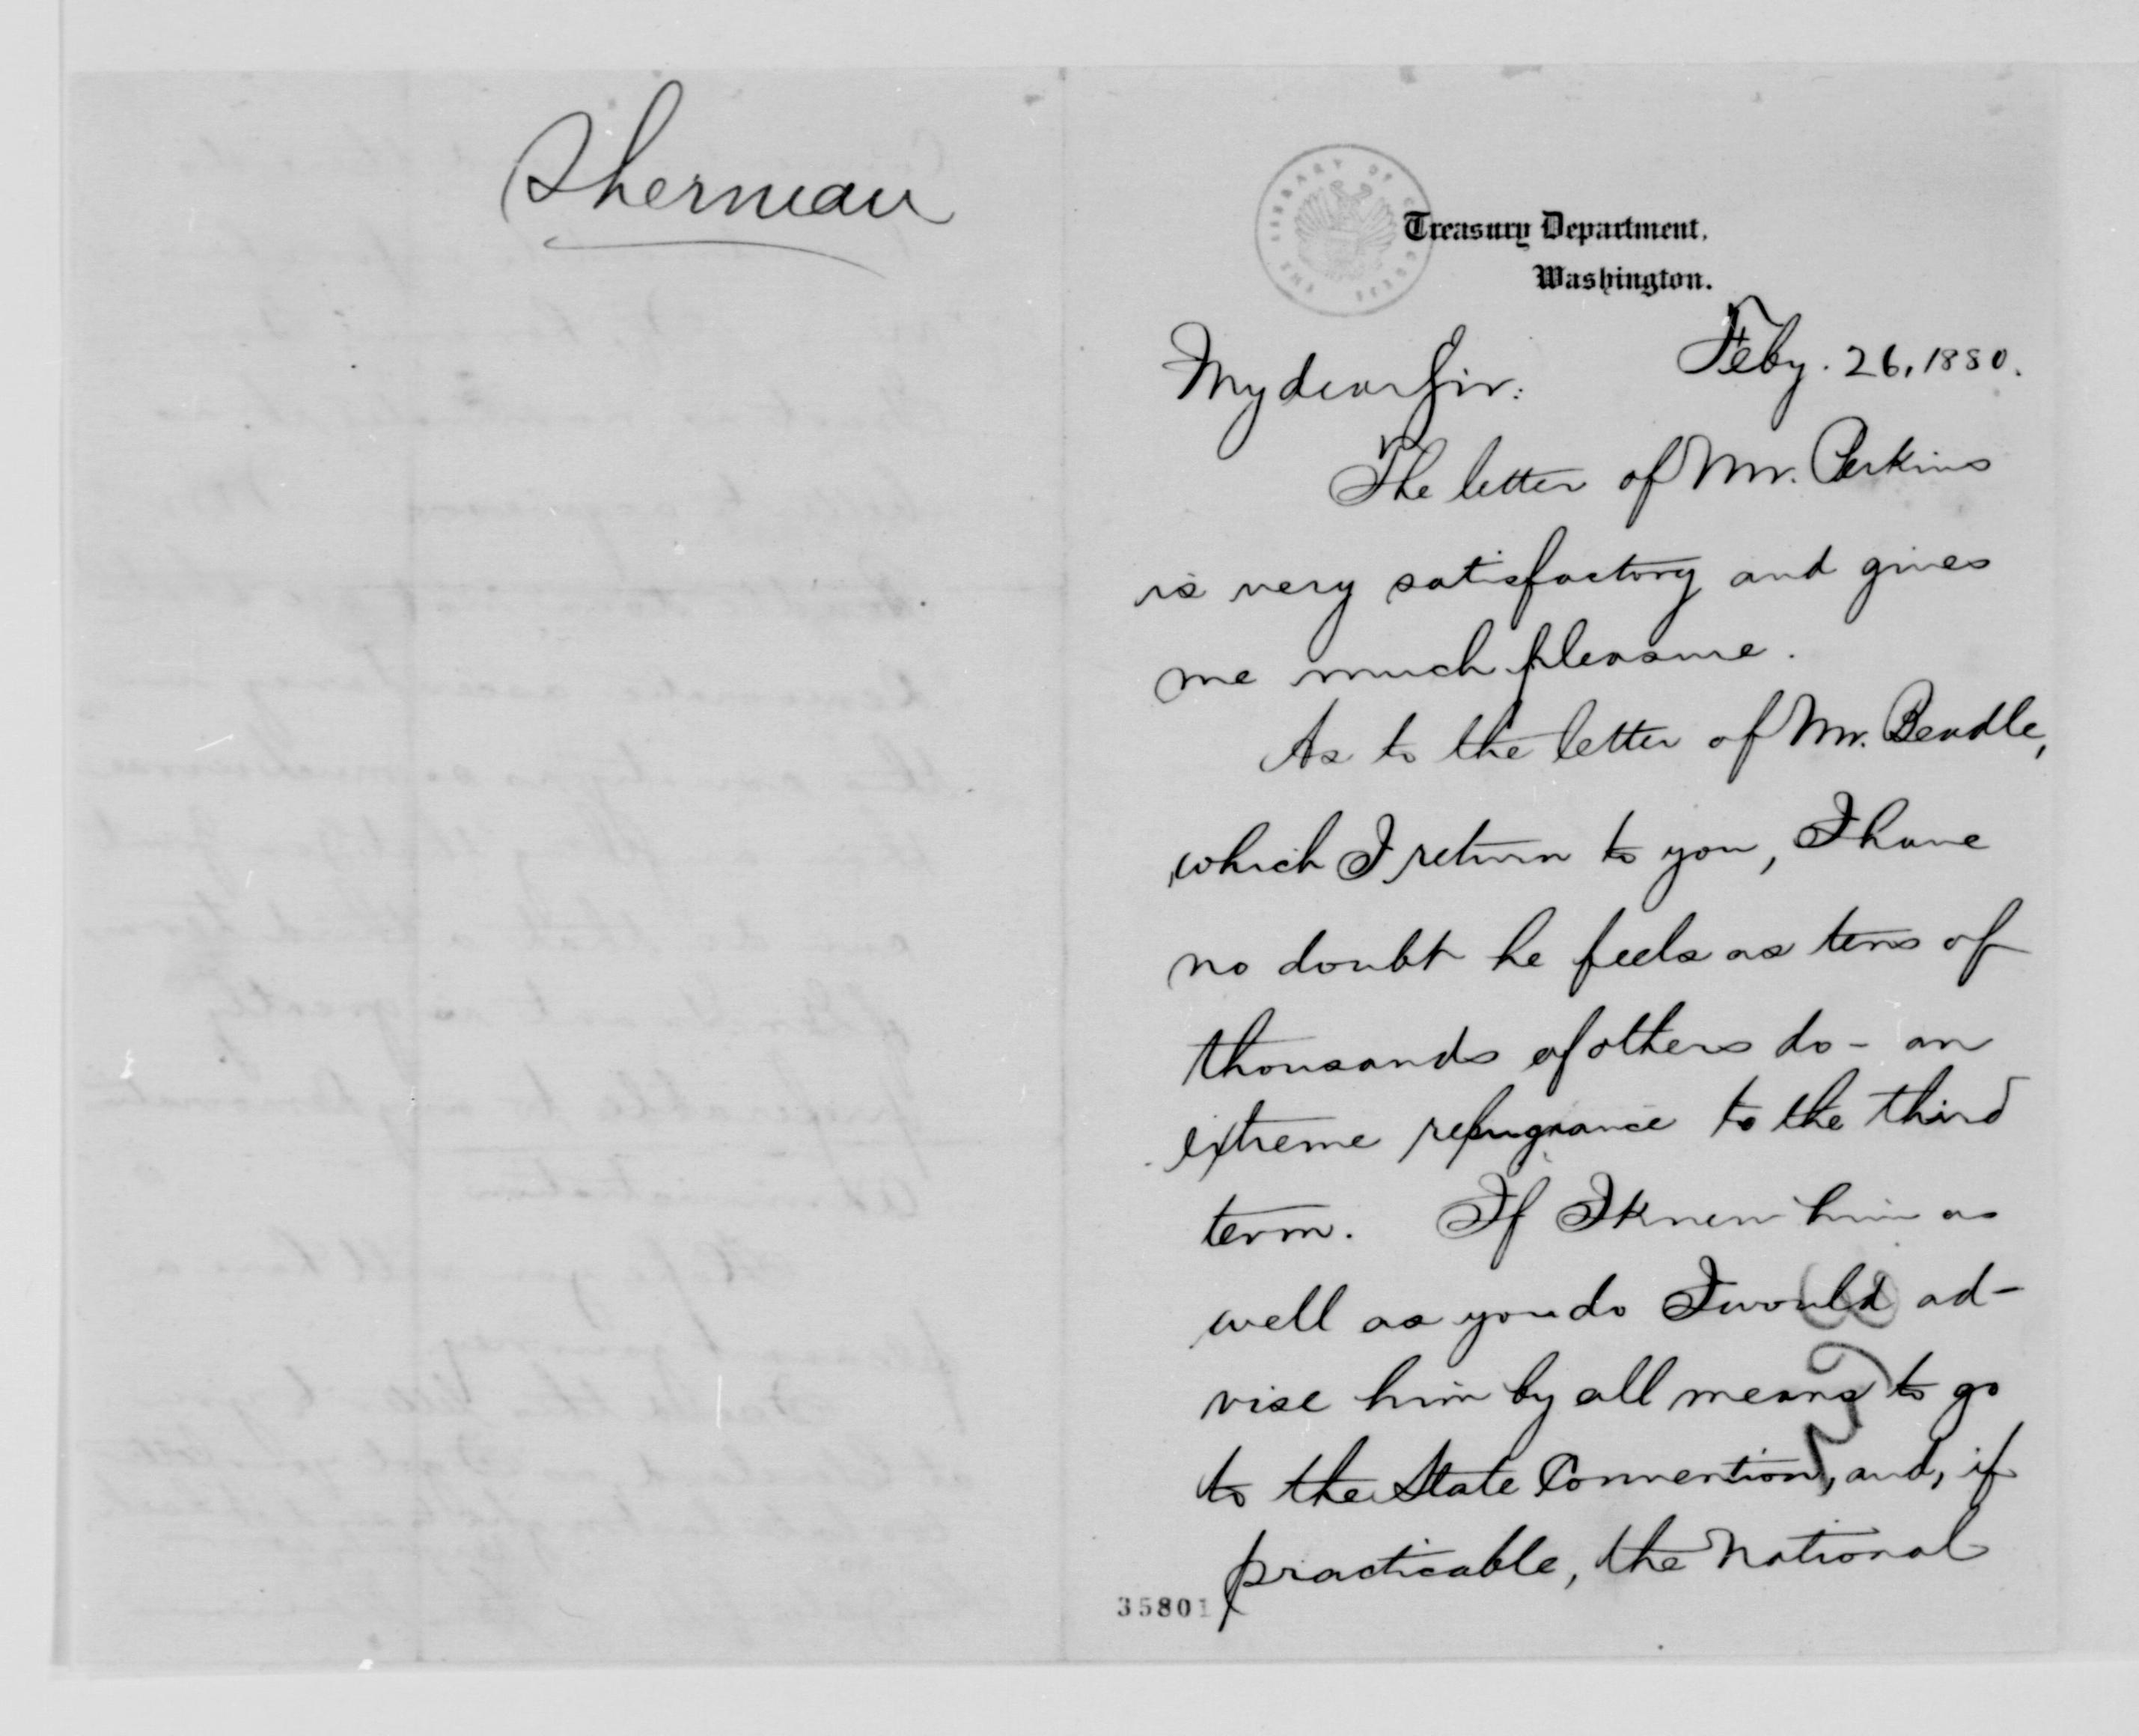 Sherman
THE LIBRARY OF CONGRESS
Treasury Department,
Washington.
Feby. 26, 1880.
My dear Sir:
The letter of Mr. Perkins
is very satisfactory and gives
me much pleasure.
As to the letter of Mr. Beadle,
which I return to you, I have
no doubt he feels as tens of
thousands of others do - an
extreme repugnance to the third
term. If I knew him as
well as you do I would ad-
vise him by all means to go
to the State Convention, and, if
practicable, the National
35801